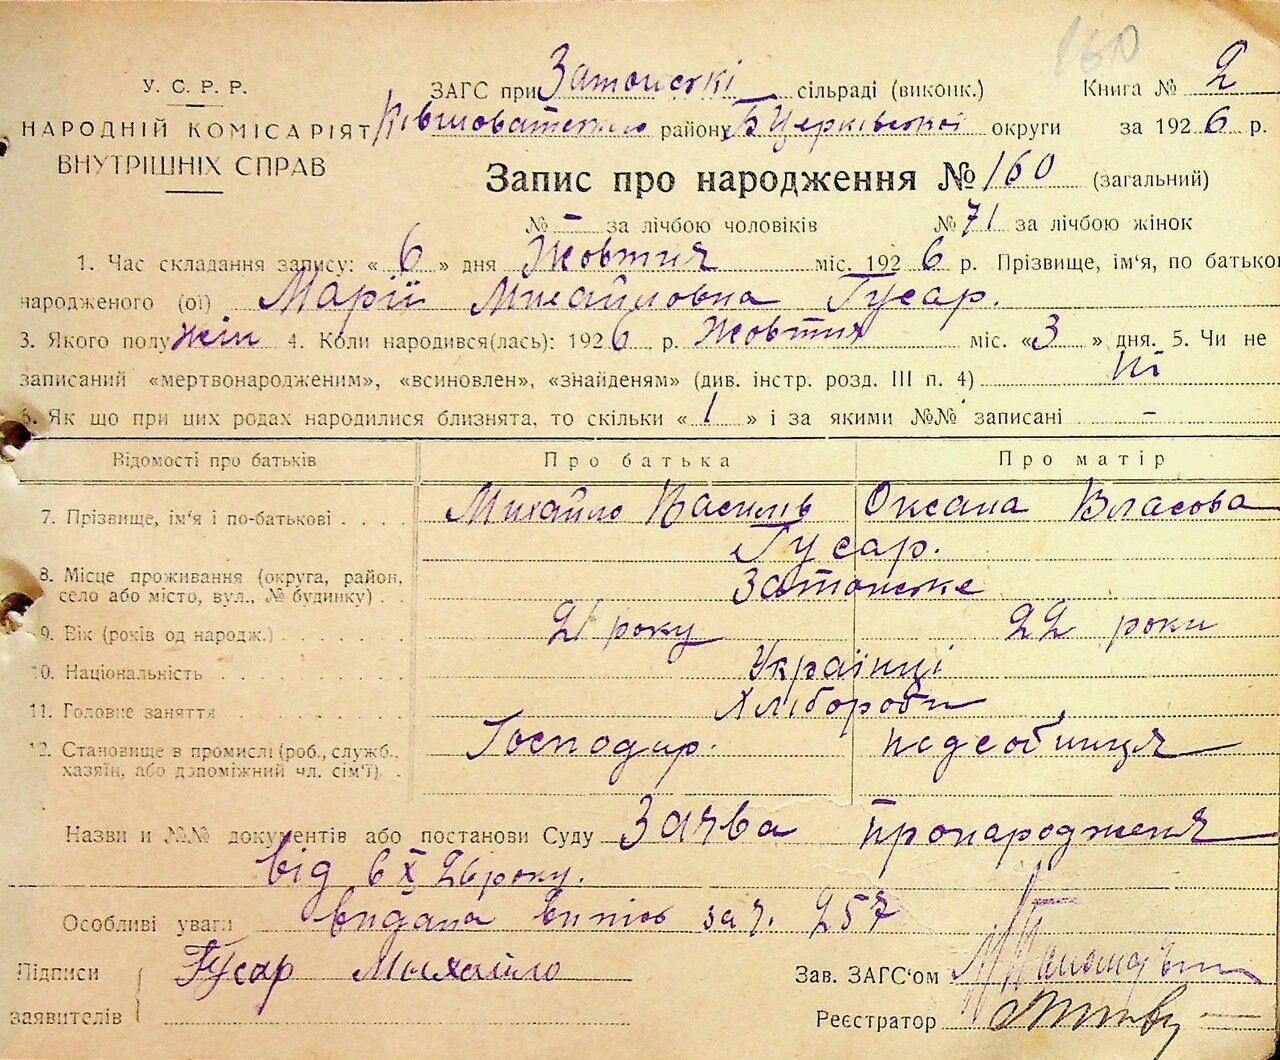 160
У. С. Р. Р.
НАРОДНІЙ КОМІСАРІЯТ
ВНУТРІШНІХ СПРАВ
ЗАГС при Затонскі сільраді (виконк.) Книга № 2
Ківшоватского району Б Церківської округи за 1926 р.
Запис про народження № 160 (загальний)
№ – за лічбою чоловіків № 71 за лічбою жінок
1. Час складання запису: « 6 » дня Жовтня міс. 1926 р. Прізвище, ім'я, по батькові
народженого (ої) Марії Михайловна Гусар.
3. Якого полу жін 4. Коли народився(лась): 1926 р. Жовтня міс. «3» дня. 5. Чи не
записаний «мертвонародженим», «всиновлен», «знайденям» (див. інстр. розд. III п. 4) Ні
6. Як що при цих родах народилися близнята, то скільки « 1 » і за якими №№ записані –
Відомості про батьків Про батька Про матір
7. Прізвище, ім'я і по-батькові Михайло Василів Оксана Власова
Гусар.
8. Місце проживання (округа, район,
село або місто, вул., № будинку) Затонске
9. Вік (років од народж.) 21 року 22 роки
10. Національність Українці
11. Головне заняття Хлібороби
12. Становище в промислі (роб., служб.,
хазяїн, або допоміжний чл. сім'ї) Господар. подсобниця
Назви и №№ документів або постанови Суду Заява пронародженя
від 6 X 26 року.
Особливі уваги видана випись за ч. 257
Підписи
заявителів Гусар Михайло
Зав. ЗАГС'ом
Реєстратор